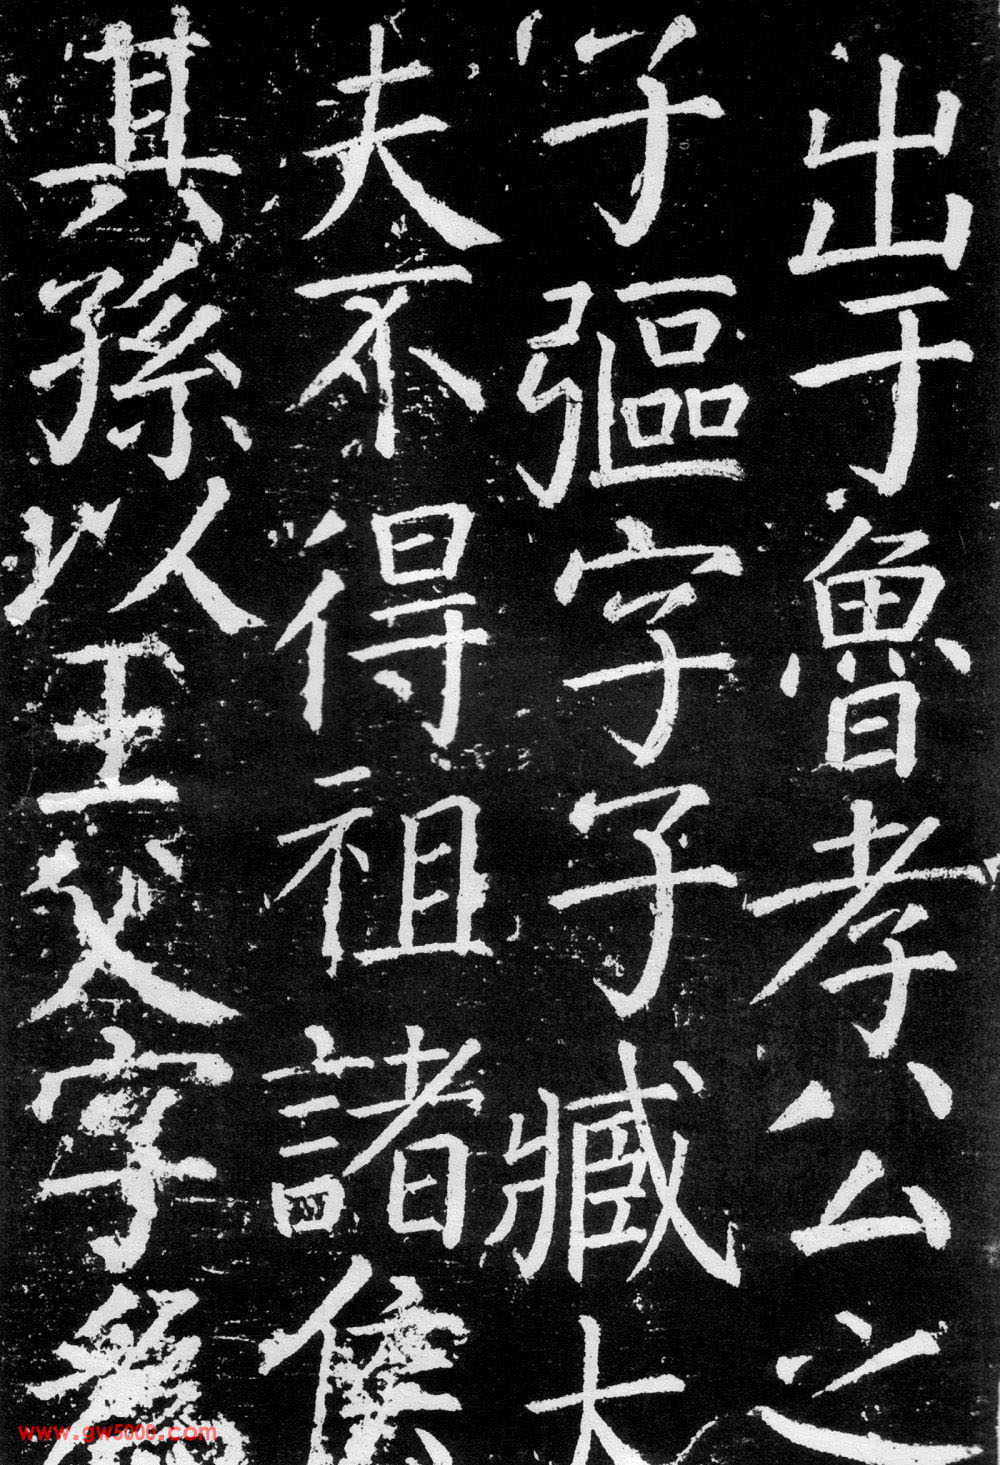 出于魯孝公之
子彄字子臧大
夫不得祖諸侯
其孫以王父字為
www.gw5000.com